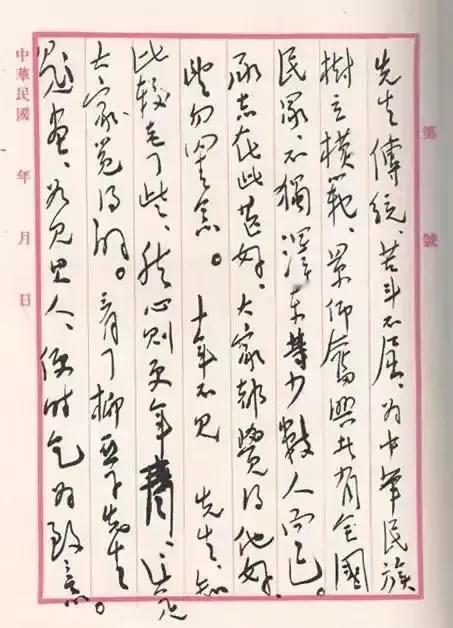 第 號
先生傳統、苦斗不屈、为中華民族
樹立模範、景仰奮興者有全國
民眾、不獨澤東等少數人而已。
承志在此甚好、大家都覺得他好、
望勿罣念。十年不见 先生、知
比較老了些、然心則更年青、这是
大家覺得的。看了柳亞子先生
題畫、如见其人、便时乞为致意。
中華民國 年 月 日